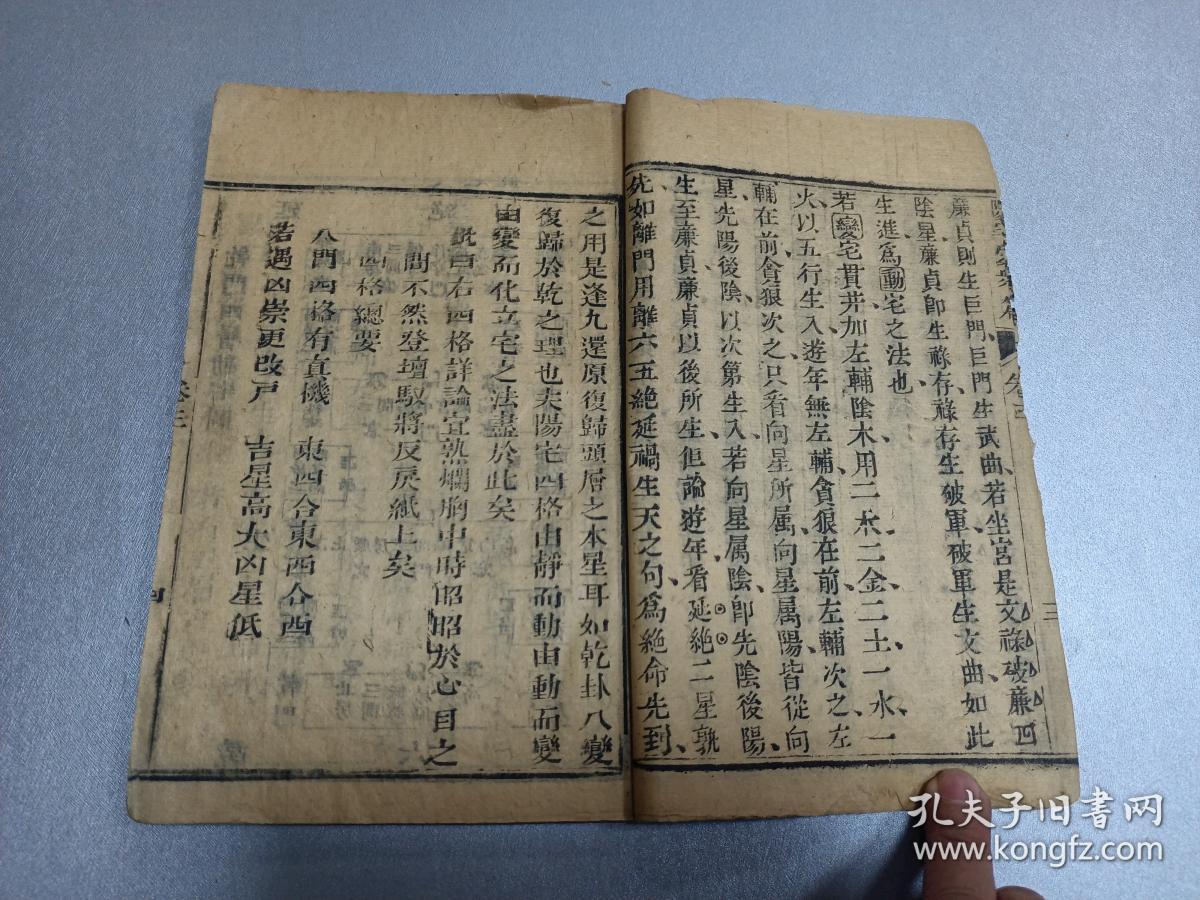 廉貞則生巨門巨門生武曲、若坐宮是文祿破廉四
陰星廉貞卽生祿存、祿存生破軍破軍生文曲、如此
生進爲動宅之法也
若變宅貫井加左輔陰木用二木二金、二土一水、一
火、以五行生入遊年無左輔貪狼在前、左輔次之、左
輔在前、貪狼次之、只看向星所屬向星屬陽、皆從向
星先陽後陰、以次第生入若向星屬陰卽先陰後陽、
生至廉貞廉貞以後所生但論遊年、看延絶二星孰
先如離門用離六五絶延禍生天之句、爲絶命先到、
之用是逢九還原復歸頭層之本星耳如乾卦八變
復歸於乾之理也夫陽宅四格由靜而動由動而變
由變而化立宅之法盡於此矣
批曰右四格詳論宜熟爛胸中時昭昭於心目之
間不然登壇馭將反戾紙上矣
四格總要
八門四格有真機 東四合東西合西
若遇凶祟更改戶 吉星高大凶星低
卷三
三
四
孔夫子旧书网
www.kongfz.com